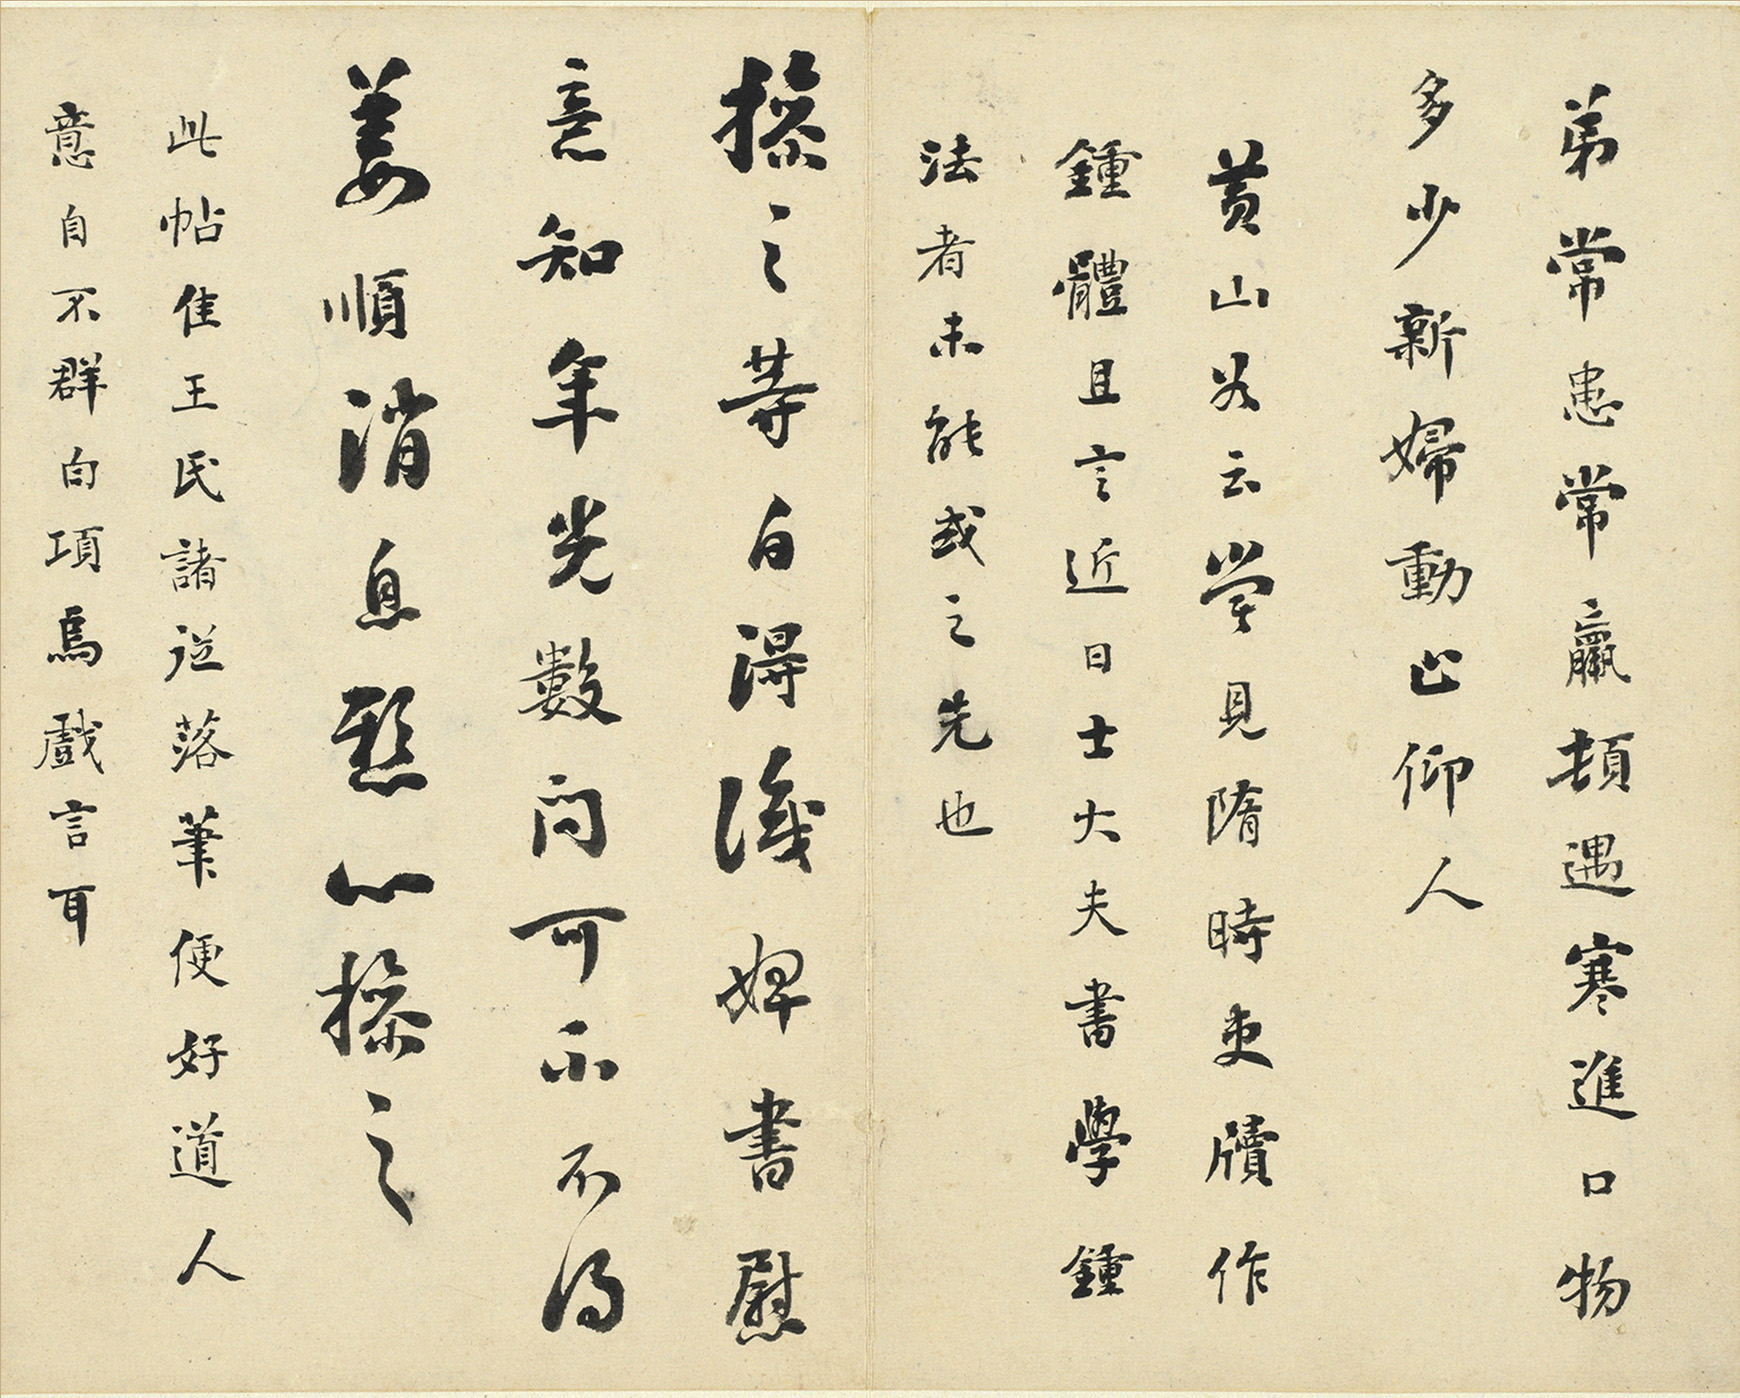 弟常患常羸頓遇寒進口物
多少新婦動止仰人
黃山谷云嘗見隋時吏牘作
鍾體且言近日士大夫書學鍾
法者未能或之先也
操之等白得識婢書慰
意知年光數問可不不得
姜順消息懸心操之
此帖隹王氏諸從落筆便好道人
意自不群白項烏戲言耳